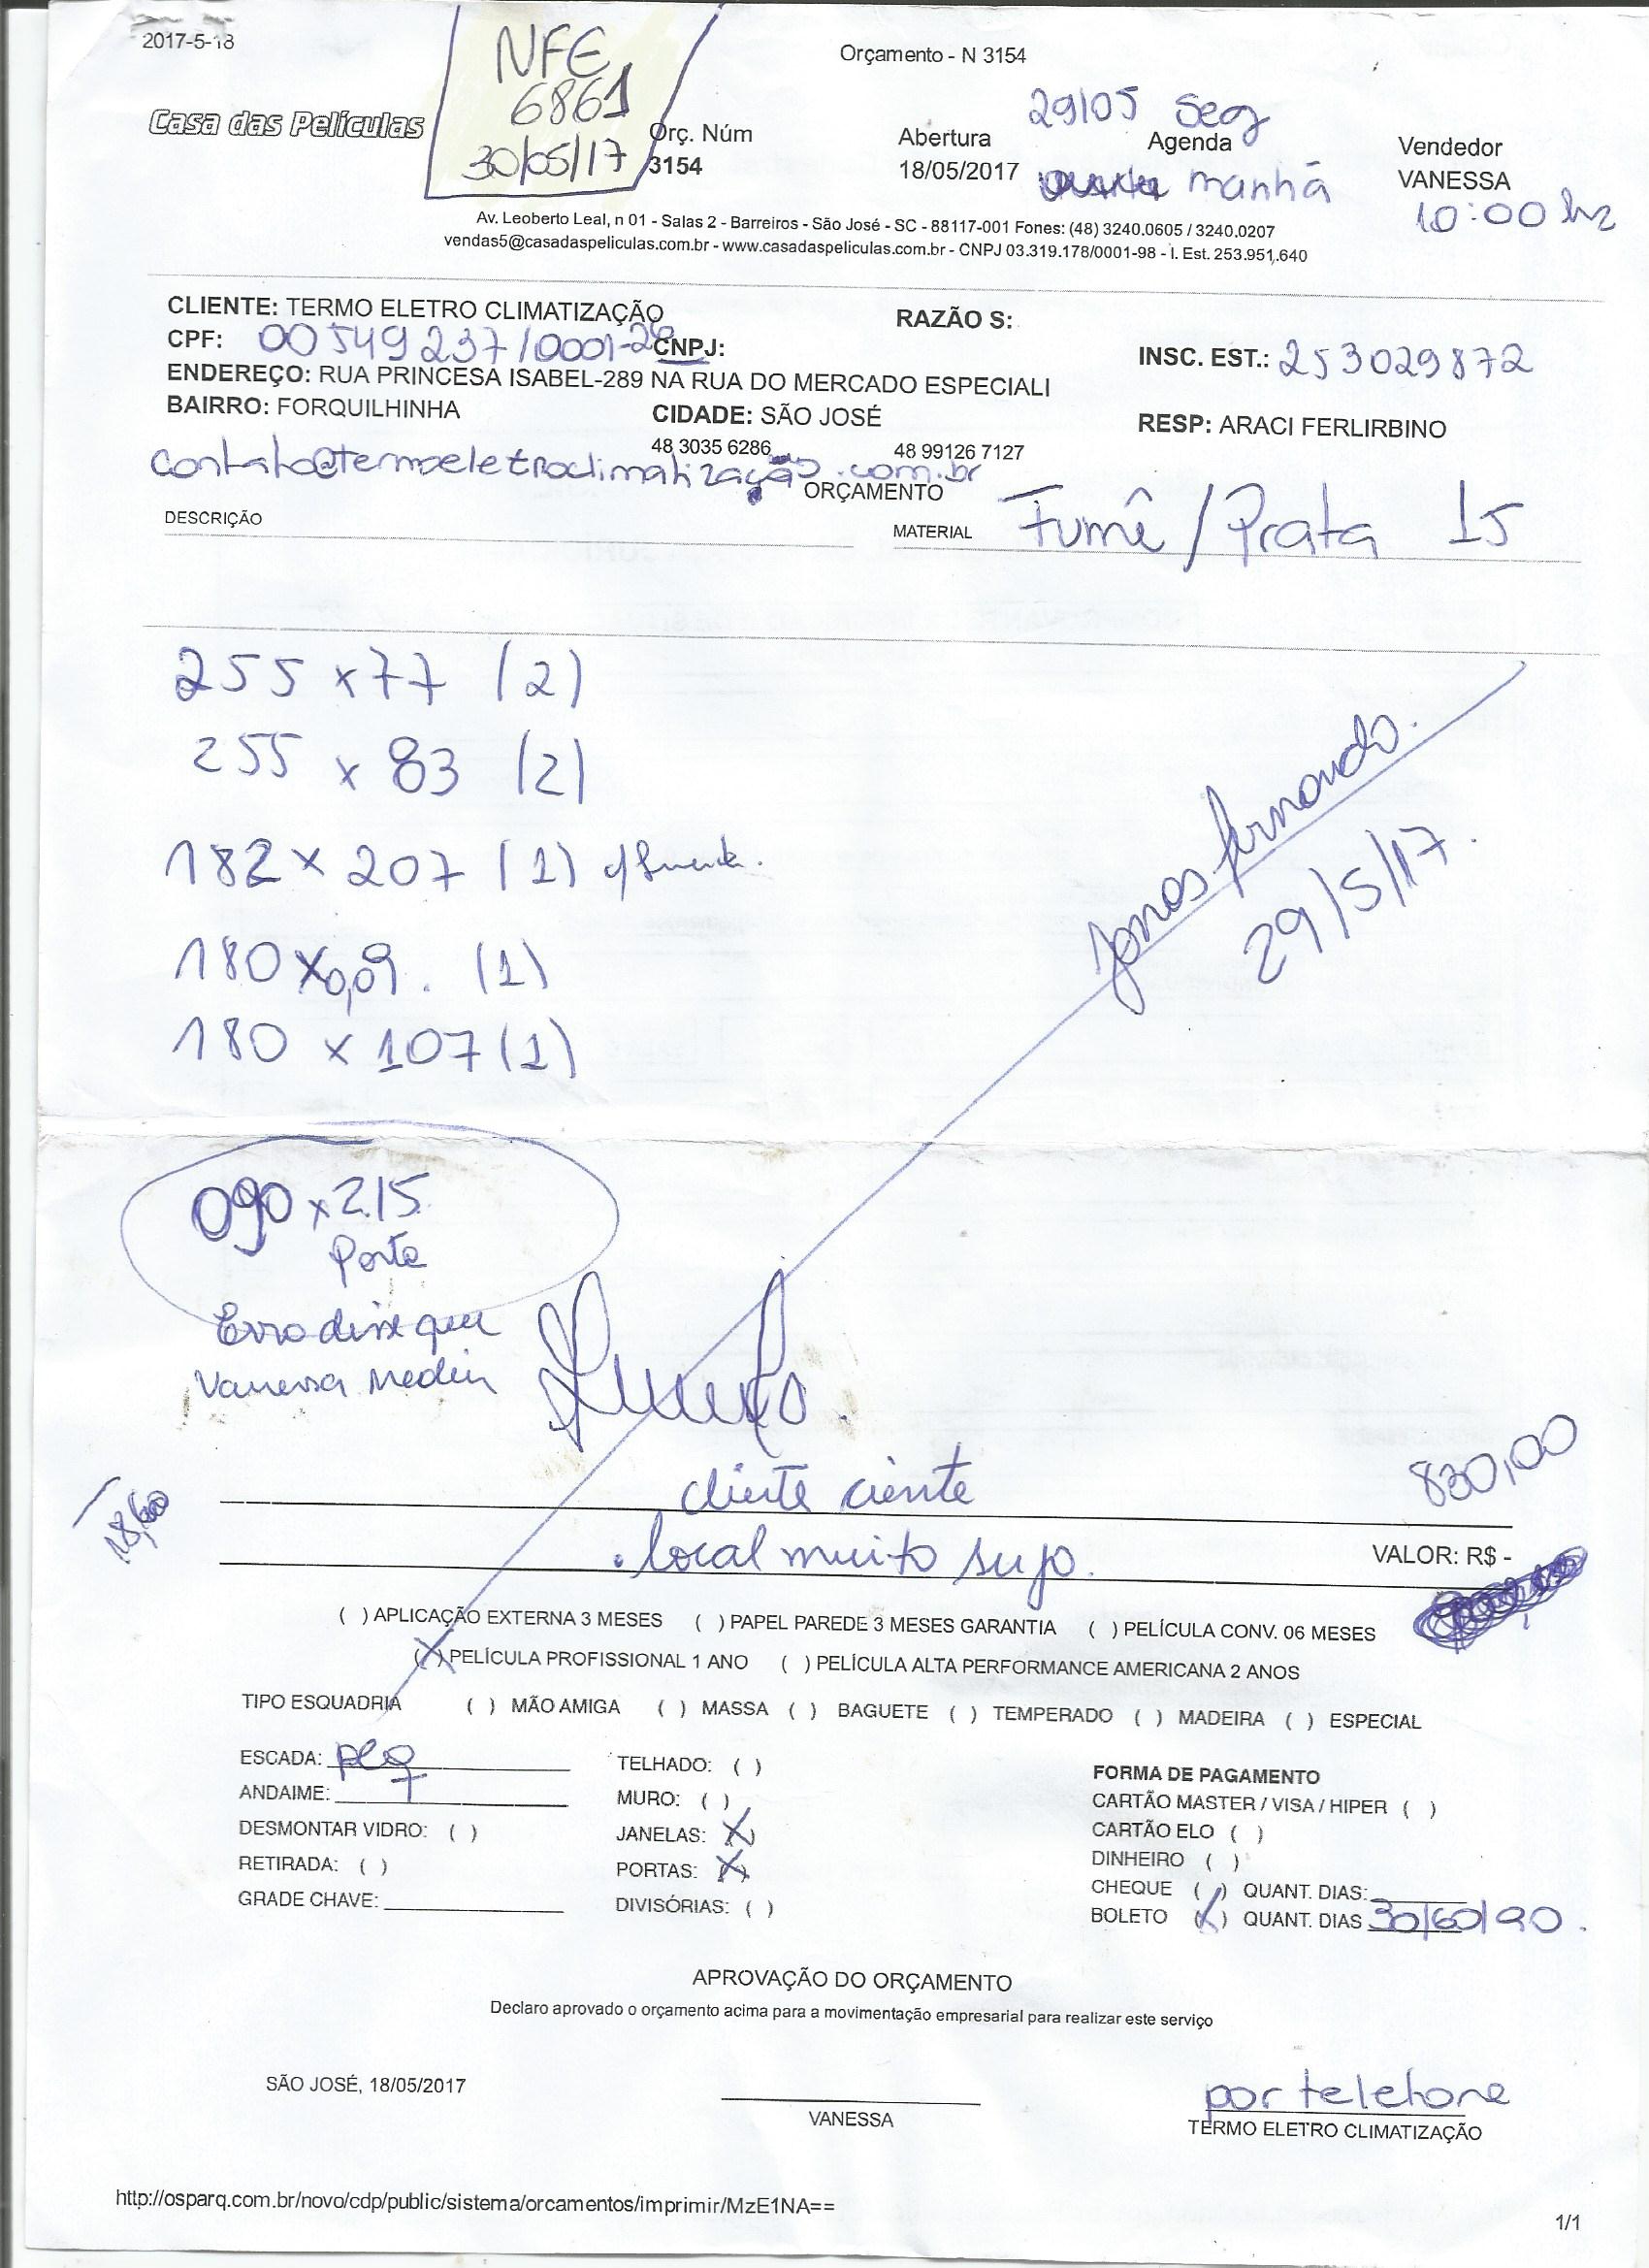 2017-5-18
Orçamento - N 3154
NFE
6861
30/05/17
Casa das Películas
Orç. Núm
3154
Abertura
18/05/2017
29/05 Seg
Agenda
manhã
Vendedor
VANESSA
10:00 hs
Av. Leoberto Leal, n 01 - Salas 2 - Barreiros - São José - SC - 88117-001 Fones: (48) 3240.0605 / 3240.0207
vendas5@casadaspeliculas.com.br - www.casadaspeliculas.com.br - CNPJ 03.319.178/0001-98 - I. Est. 253.951.640
CLIENTE: TERMO ELETRO CLIMATIZAÇÃO
RAZÃO S:
CPF: 00549237/0001-26 CNPJ:
INSC. EST.: 253029872
ENDEREÇO: RUA PRINCESA ISABEL-289 NA RUA DO MERCADO ESPECIALI
BAIRRO: FORQUILHINHA
CIDADE: SÃO JOSÉ
RESP: ARACI FERLIRBINO
48 3035 6286
48 99126 7127
contato@termoeletroclimatização.com.br
ORÇAMENTO
DESCRIÇÃO
MATERIAL Fumê/Prata 15
255 x 77 (2)
255 x 83 (2)
182 x 207 (1)
180 x 0,09. (1)
180 x 107 (1)
Jonas fernando.
29/5/17.
090 x 215
Porta
Erro disse que
Vanessa Mediu
cliente ciente
830,00
18,60
. local muito sujo.
VALOR: R$ -
( ) APLICAÇÃO EXTERNA 3 MESES ( ) PAPEL PAREDE 3 MESES GARANTIA ( ) PELÍCULA CONV. 06 MESES
(X) PELÍCULA PROFISSIONAL 1 ANO ( ) PELÍCULA ALTA PERFORMANCE AMERICANA 2 ANOS
TIPO ESQUADRIA ( ) MÃO AMIGA ( ) MASSA ( ) BAGUETE ( ) TEMPERADO ( ) MADEIRA ( ) ESPECIAL
ESCADA: peq
TELHADO: ( )
FORMA DE PAGAMENTO
ANDAIME:
MURO: ( )
CARTÃO MASTER / VISA / HIPER ( )
DESMONTAR VIDRO: ( )
JANELAS: (X)
CARTÃO ELO ( )
RETIRADA: ( )
PORTAS: (X)
DINHEIRO ( )
GRADE CHAVE:
DIVISÓRIAS: ( )
CHEQUE ( ) QUANT. DIAS:
BOLETO (X) QUANT. DIAS 30/60/90.
APROVAÇÃO DO ORÇAMENTO
Declaro aprovado o orçamento acima para a movimentação empresarial para realizar este serviço
SÃO JOSÉ, 18/05/2017
VANESSA
por telefone
TERMO ELETRO CLIMATIZAÇÃO
http://osparq.com.br/novo/cdp/public/sistema/orcamentos/imprimir/MzE1NA==
1/1